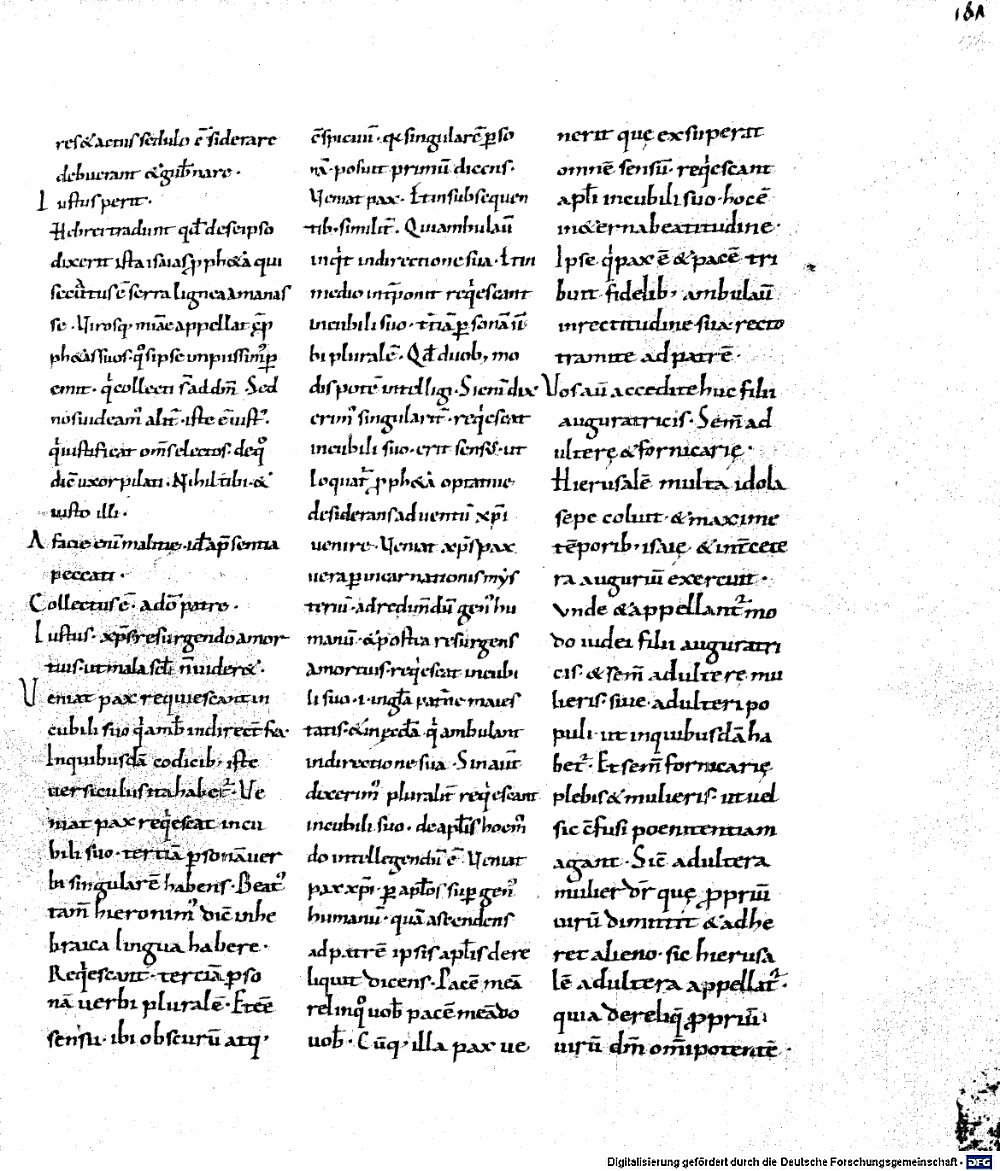 181
res & actus sedulo c̄siderare
debuerant & gub̄nare·
Iustus perit·
Hebrei tradunt qđ de se ipso
dixerit ista isaias ꝓph&a qui
secutus ē serra lignea a manas
se· Virosq; mīæ appellat
ph&as suos·
emit· collecti s̄ ad dm̄· Sed
nos iudeam̄ alit̄· iste ē iust᷒·
iustificat om̄s electos· de
dic̄ uxor pilati· Nihil tibi &
iusto illi·
A facie enī malitiæ· id ē a p̄sentia
peccati·
Collectus ē· a dō patre·
Iustus· xp̄s resurgendo a mor
tuis· ut mala scli n̄ uider&·
Veniat pax requiescant in
cubili suo q̇ amb̄ in direct̄ sua·
In quibusdā codicib; iste
uersiculus ita habet᷒· Ve
niat pax req̇escat in cu
bili suo· tertiā ꝑsonā uer
bi singularē habens· Beat᷒
tam̄ hieronim᷒ dic̄ in he
braica lingua habere·
Req̇escant· tertiā ꝑso
nā uerbi pluralē· Et eē
sensū· ibi obscurū atq;
c̄spicuū· q̇a singularē ꝑso
nā· posuit primū dicens·
Veniat pax· Et in subsequen
tib· similit̄· Qui ambulauit̄
inq̇t in directione sua· Et in
medio int̄ponit req̇escant
in cubili suo· t̄tiā ꝑsonā ū
bi pluralē· Qđ duob; mo
dis potē intelligi· Si eni dix
erim᷒ singularit̄· req̇escat
in cubili suo· erit sensus· ut
loquat᷒ ꝓph&a optatiue
desiderans aduentū xp̄i
uenire· Veniat xp̄s pax
uera ꝑ incarnationis mys
teriū· ad redimdū gen᷒ hu
manū· & postea resurgens
a mortuis· req̇escat in cubi
li suo· i· in gl̄a patn̄e maies
tatis· & inced̄a· q̇ ambulant
in directione sua· Sin aut̄
dixerim᷒ pluralit̄ req̇escant
in cubili suo· de apl̄is hoc m̄
do intellegendū ē· Veniat
pax xp̄i· ꝑ apl̄os sup gen᷒
humanū· quā ascendens
ad patrē ipsis apl̄is dere
liquit dicens· Pacē meā
relinq̊ uob̄ pacē meā do
uob̄· Cūq; illa pax ue
nerit quę exsuperat
omnē sensū· req̇escant
apl̄i in cubili suo· hoc ē
in &erna beatitudine·
Ipse q̇ pax ē & pacē tri
buit fidelib; ambulauit̄
in rectitudine sua recto
tramite ad patrē·
Vos aū accedite huc filii
auguratricis· Sem̄ ad
ulterę & fornicarię·
Hierusalē multa idola
sepe coluit· & maxime
tēporib; isaię & int̄ cete
ra auguriū exercuit·
Vnde & appellant᷒ mo
do iudei filii auguratri
cis· & sem̄ adulterę mu
lieris· siue adulteri po
puli· ut in quibusdā ha
bet᷒· Et sem̄ fornicarię
plebis & mulieris· ut uel
sic c̄fusi poenitentiam
agant· Sic̄ adultera
mulier dr̄ quę ꝓpriū
uirū dimittit & adhe
ret alieno· sic hierusa
lē adultera appellat᷒·
quia dereliq̇ ꝓpriū
uirū dm̄ om̄ipotentē·
Digitalisierung gefördert durch die Deutsche Forschungsgemeinschaft · DFG